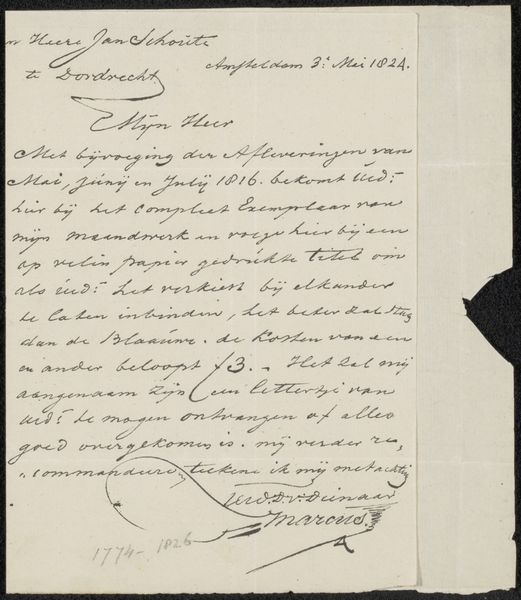 n Heere Jan Schoute
te Dordrecht.
Amsteldam 3.' Mai 1824.
Mijn Heer
Met bijvoeging der Afleveringen van
Mai, Junij en Julij 1816. bekomt Ued:
hier bij het compleet Exemplaar van
mijn maandwerk en voege hier bij een
op velin papier gedrukte titel om
als Ued: het verkiest bij elkander
te laten inbinden, het beter zal
dan de Blaauwe. de kosten van een
en ander beloopt f3. - Het zal mij
aangenaam zijn een lettertje van
Ued: te mogen ontvangen of alles
goed overgekomen is. mij verder re-
commandere, teekene ik mij met achting
Ued. D. v. Dienaar
Marcus.
1774-1826